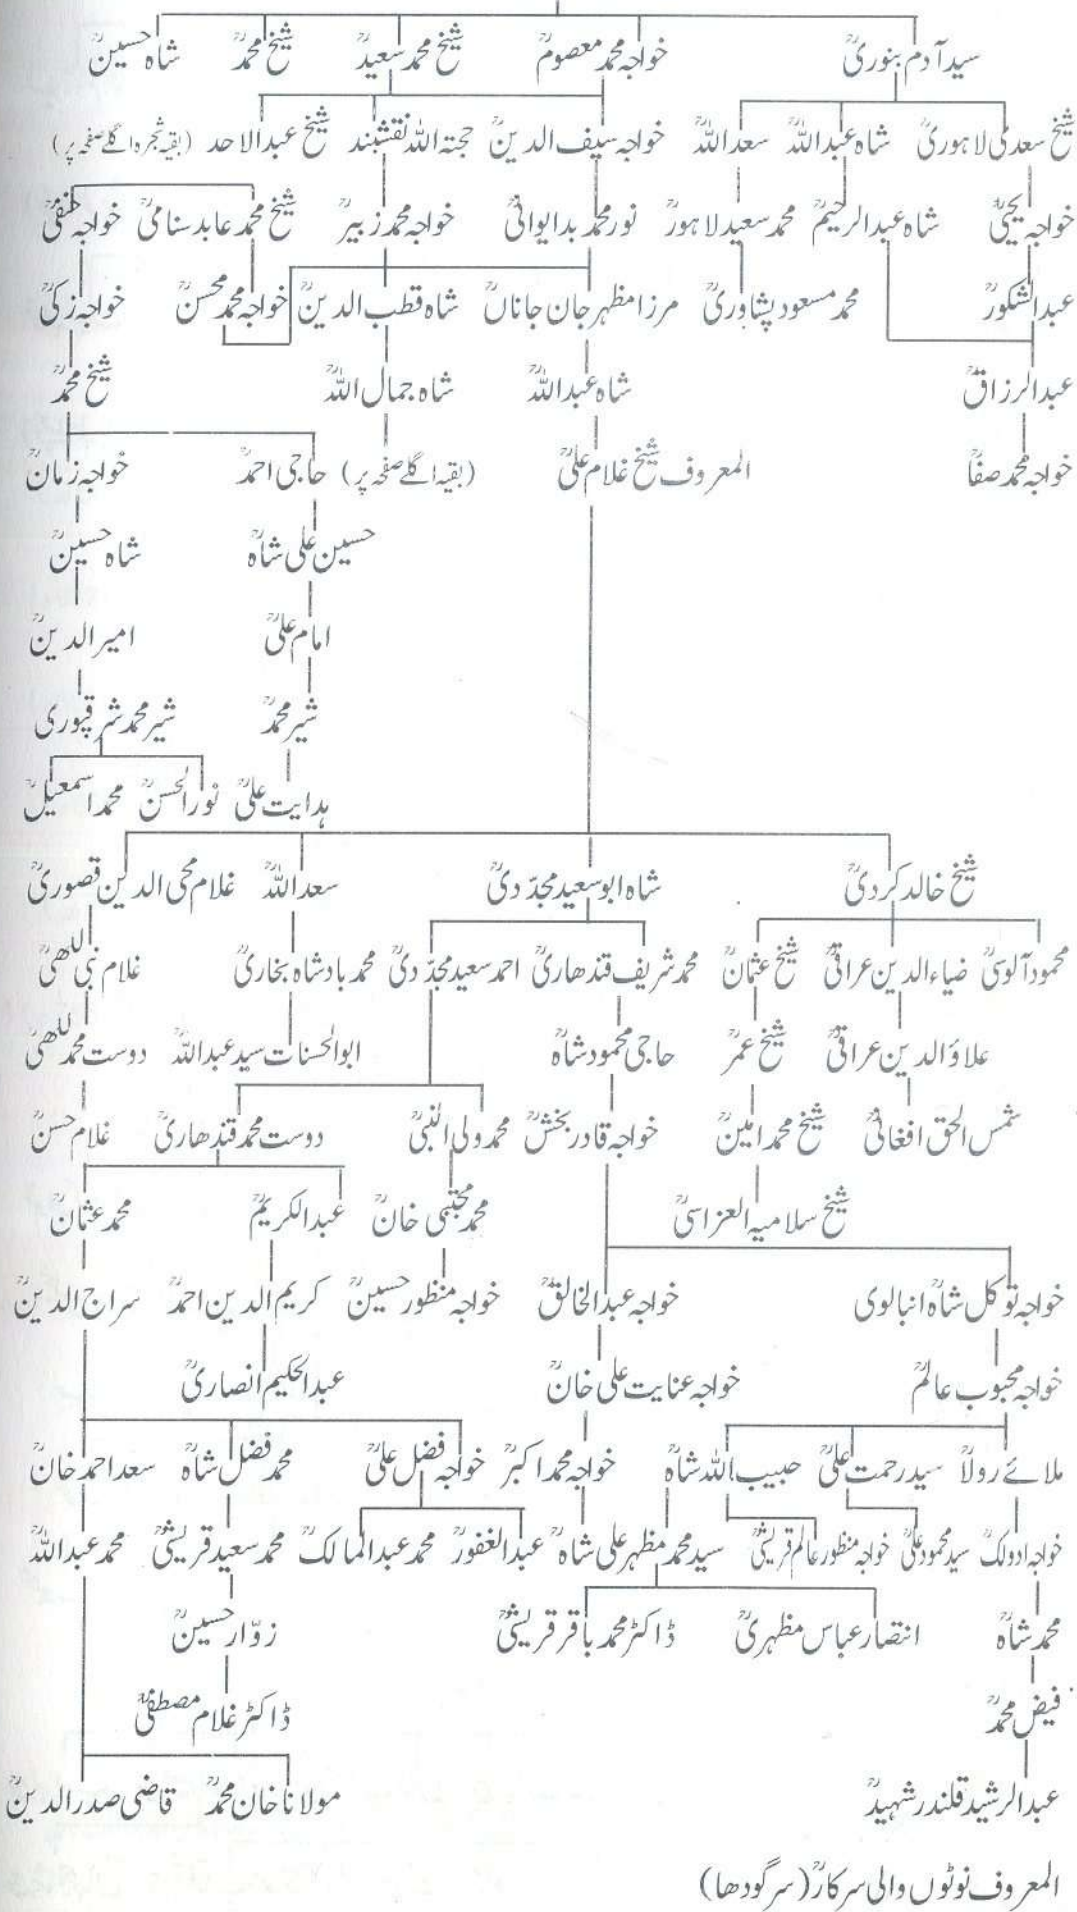 سید آدم بنوریؒ خواجہ محمد معصومؒ شیخ محمد سعیدؒ شیخ محمدؒ شاہ حسینؒ
شیخ سعدی لاہوریؒ شاہ عبداللہؒ سعداللہؒ خواجہ سیف الدینؒ حجتہ اللہ نقشبند شیخ عبدالاحد (بقیہ شجرہ اگلے صفحہ پر)
خواجہ یحییٰؒ شاہ عبدالرحیمؒ محمد سعید لاہوریؒ نور محمد بدایوانیؒ خواجہ محمد زبیرؒ شیخ محمد عابد سنامیؒ خواجہ حنفیؒ
عبدالشکورؒ محمد مسعود پشاوریؒ مرزا مظہر جان جاناںؒ شاہ قطب الدینؒ خواجہ محمد محسنؒ خواجہ زکیؒ
عبدالرزاقؒ شاہ عبداللہؒ شاہ جمال اللہؒ شیخ محمدؒ
خواجہ محمد صفاؒ المعروف شیخ غلام علیؒ (بقیہ اگلے صفحہ پر) حاجی احمدؒ خواجہ زمانؒ
حسین علی شاہؒ شاہ حسینؒ
امام علیؒ امیر الدینؒ
شیر محمدؒ شیر محمد شرقپوری
ہدایت علیؒ نور الحسنؒ محمد اسمعیلؒ
شیخ خالد کردیؒ شاہ ابو سعید مجدّدیؒ سعداللہؒ غلام محی الدین قصوریؒ
محمود آلوسیؒ ضیاء الدین عراقیؒ شیخ عثمانؒ محمد شریف قندھاریؒ احمد سعید مجدّدیؒ محمد بادشاہ بخاریؒ غلام نبی للھیؒ
علاؤ الدین عراقیؒ شیخ عمرؒ حاجی محمود شاہؒ ابوالحسنات سید عبداللہؒ دوست محمد للھیؒ
شمس الحق افغانیؒ شیخ محمد امینؒ خواجہ قادر بخشؒ محمد ولی النبیؒ دوست محمد قندھاریؒ غلام حسنؒ
شیخ سلامیہ العزاسیؒ محمد مجتبیٰ خانؒ عبدالکریمؒ محمد عثمانؒ
خواجہ توکل شاہؒ انبالوی خواجہ عبدالخالقؒ خواجہ منظور حسینؒ کریم الدین احمدؒ سراج الدینؒ
خواجہ محبوب عالمؒ خواجہ عنایت علی خانؒ عبدالحکیم انصاریؒ
ملائے رولاؒ سید رحمت علیؒ حبیب اللہ شاہؒ خواجہ محمد اکبرؒ خواجہ فضل علیؒ محمد فضل شاہؒ سعد احمد خانؒ
خواجہ ادولکؒ سید محمود علیؒ خواجہ منظور عالم قریشیؒ سید محمد مظہر علی شاہؒ عبدالغفورؒ محمد عبدالمالکؒ محمد سعید قریشیؒ محمد عبداللہؒ
محمد شاہؒ انتصار عباس مظہریؒ ڈاکٹر محمد باقر قریشیؒ زوّار حسینؒ
فیض محمدؒ ڈاکٹر غلام مصطفیٰؒ
عبدالرشید قلندر شہیدؒ مولانا خان محمدؒ قاضی صدر الدینؒ
المعروف نوٹوں والی سرکارؒ (سرگودھا)